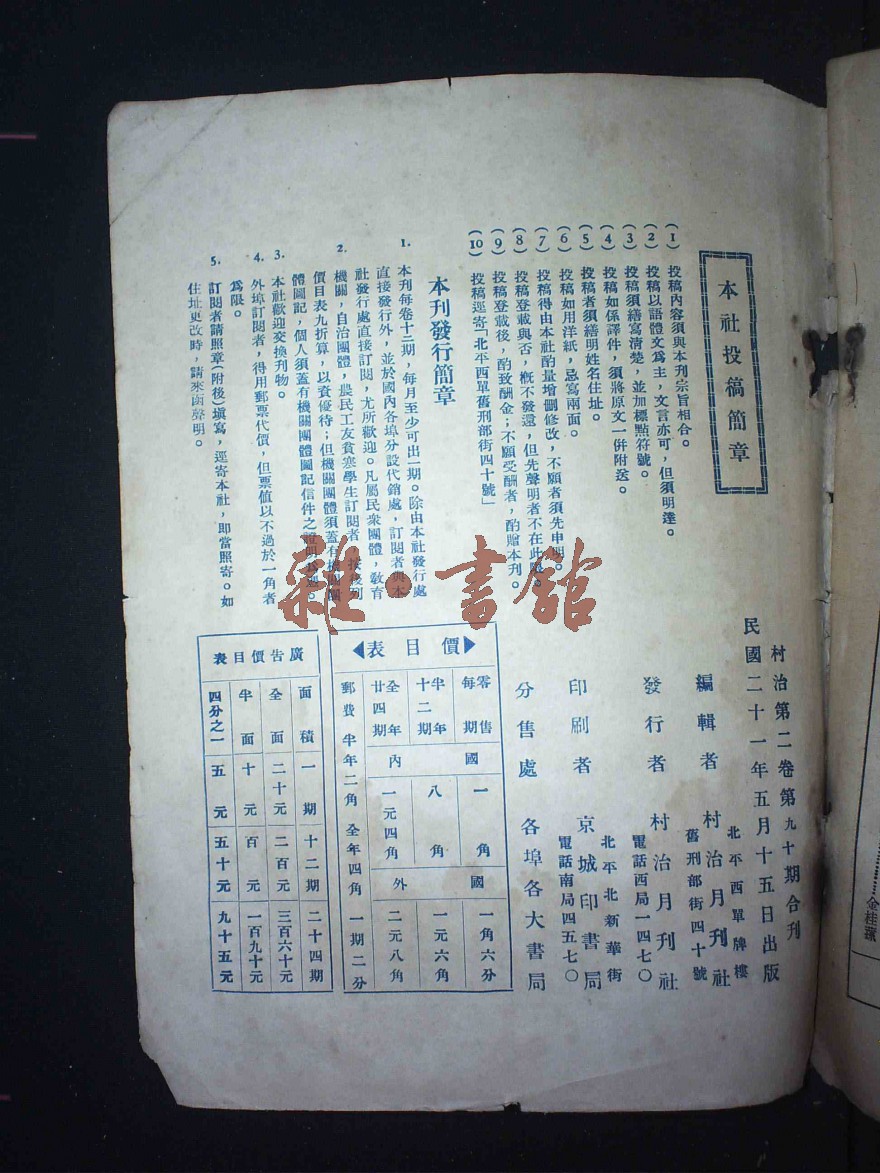 本社投稿簡章
(1) 投稿內容須與本刊宗旨相合。
(2) 投稿以語體文爲主，文言亦可，但須明達。
(3) 投稿須繕寫清楚，並加標點符號。
(4) 投稿如係譯件，須將原文一併附送。
(5) 投稿者須繕明姓名住址。
(6) 投稿如用洋紙，忌寫兩面。
(7) 投稿得由本社酌量增刪修改，不願者須先申明。
(8) 投稿登載與否，槪不發還，但先聲明者不在此限。
(9) 投稿登載後，酌致酬金；不願受酬者，酌贈本刊。
(10) 投稿逕寄「北平西單舊刑部街四十號」
本刊發行簡章
1. 本刊每卷十二期，每月至少可出一期。除由本社發行處
直接發行外，並於國內各埠分設代銷處，訂閱者與本
社發行處直接訂閱，尤所歡迎。凡屬民衆團體，敎育
2. 機關，自治團體，農民工友貧寒學生訂閱者，按後列
價目表九折算，以資優待；但機關團體須蓋有機關團
體圖記，個人須蓋有機關團體圖記信件之證明爲憑。
3. 本社歡迎交換刊物。
4. 外埠訂閱者，得用郵票代價，但票值以不過於一角者
爲限。
5. 訂閱者請照章(附後)塡寫，逕寄本社，即當照寄。如
住址更改時，請來函聲明。
村治第二卷第九十期合刊
民國二十一年五月十五日出版
編輯者 村治月刊社
北平西單牌樓
舊刑部街四十號
發行者 村治月刊社
電話西局一四七〇
印刷者 京城印書局
北平北新華街
電話南局四五七〇
分售處 各埠各大書局
價目表
零售每期 國內 一角 國外 一角六分
半年十二期 八角 一元六角
全年廿四期 一元四角 二元八角
郵費 半年二角 全年四角 一期二分
廣告價目表
面積 一期 十二期 二十四期
全面 二十元 二百元 三百六十元
半面 十元 百元 一百九十元
四分之一 五元 五十元 九十五元
雜·書館
金桂蓀